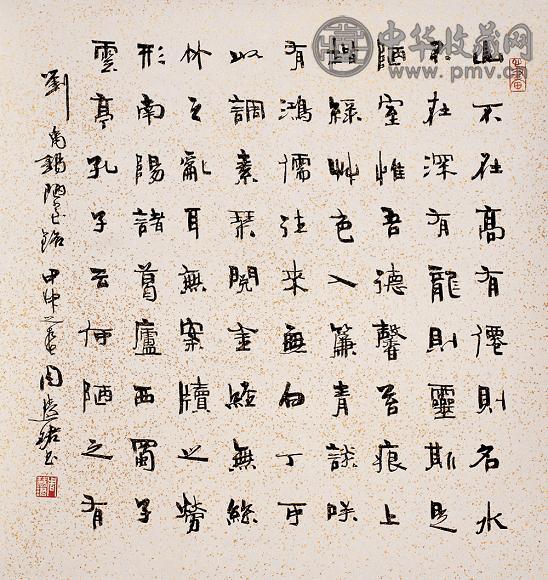 山不在高有僊則名水
不在深有龍則靈斯是
陋室惟吾德馨苔痕上
階綠艸色入簾青談咲
有鴻儒往來無白丁可
以調素琴閱金經無絲
竹之亂耳無案牘之勞
形南陽諸葛廬西蜀子
雲亭孔子云何陋之有
劉禹錫陋室銘 甲申之春 周
中华收藏网
www.pmv.cn